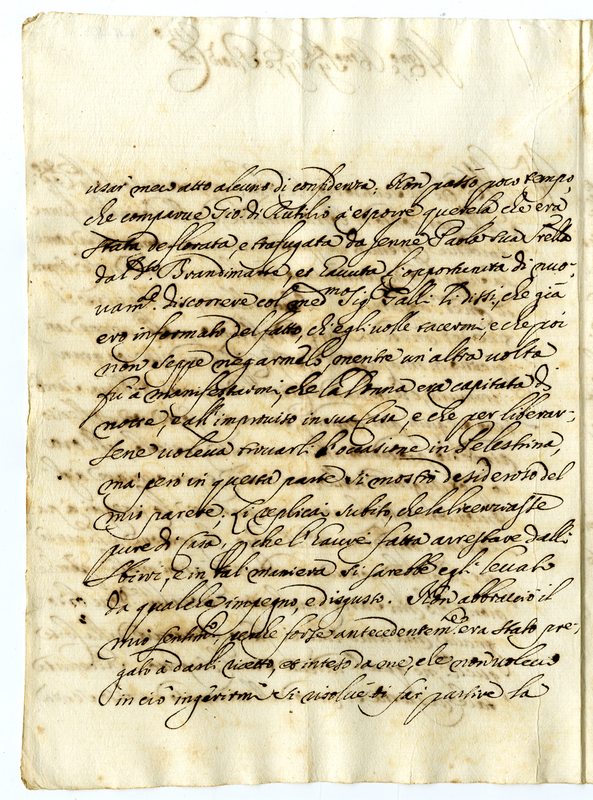 usar meco atto alcuno di confidenza. Non passò poco tempo,
che comparue Gio. di Rutilio à esporre querela che era
stata deflorata, e trafugata da Jenne Paola sua Sorella
dal dto Brandimarte, et hauuta l'opportunità di nuo-
uamte discorrere col medmo Sig. Galli li dissi, che già
ero informato del fatto, ch'egli uolle tacermi, e che poi
non seppe negarmelo, mentre un'altra uolta
fù à manifestarmi, che la Donna era capitata di
notte, e all'improuiso in sua Casa, e che per liberar-
sene uoleua trouarli l'occasione in Pelestrina,
mà però in questa parte si mostrò desideroso del
mio parere; Li replicai subito, che la licenziasse
pure di Casa, che l'haurei fatta arrestare dalli
Sbirri, e in tal maniera si sarebbe egli leuato
da qualche impegno, e disgusto. Non abbracciò il
mio sentimto, perche forse antecedentemte era stato pre-
gato à darli ricetto, et inteso da me, che non uoleuo
in ciò ingerirmi si risolué di far partire la